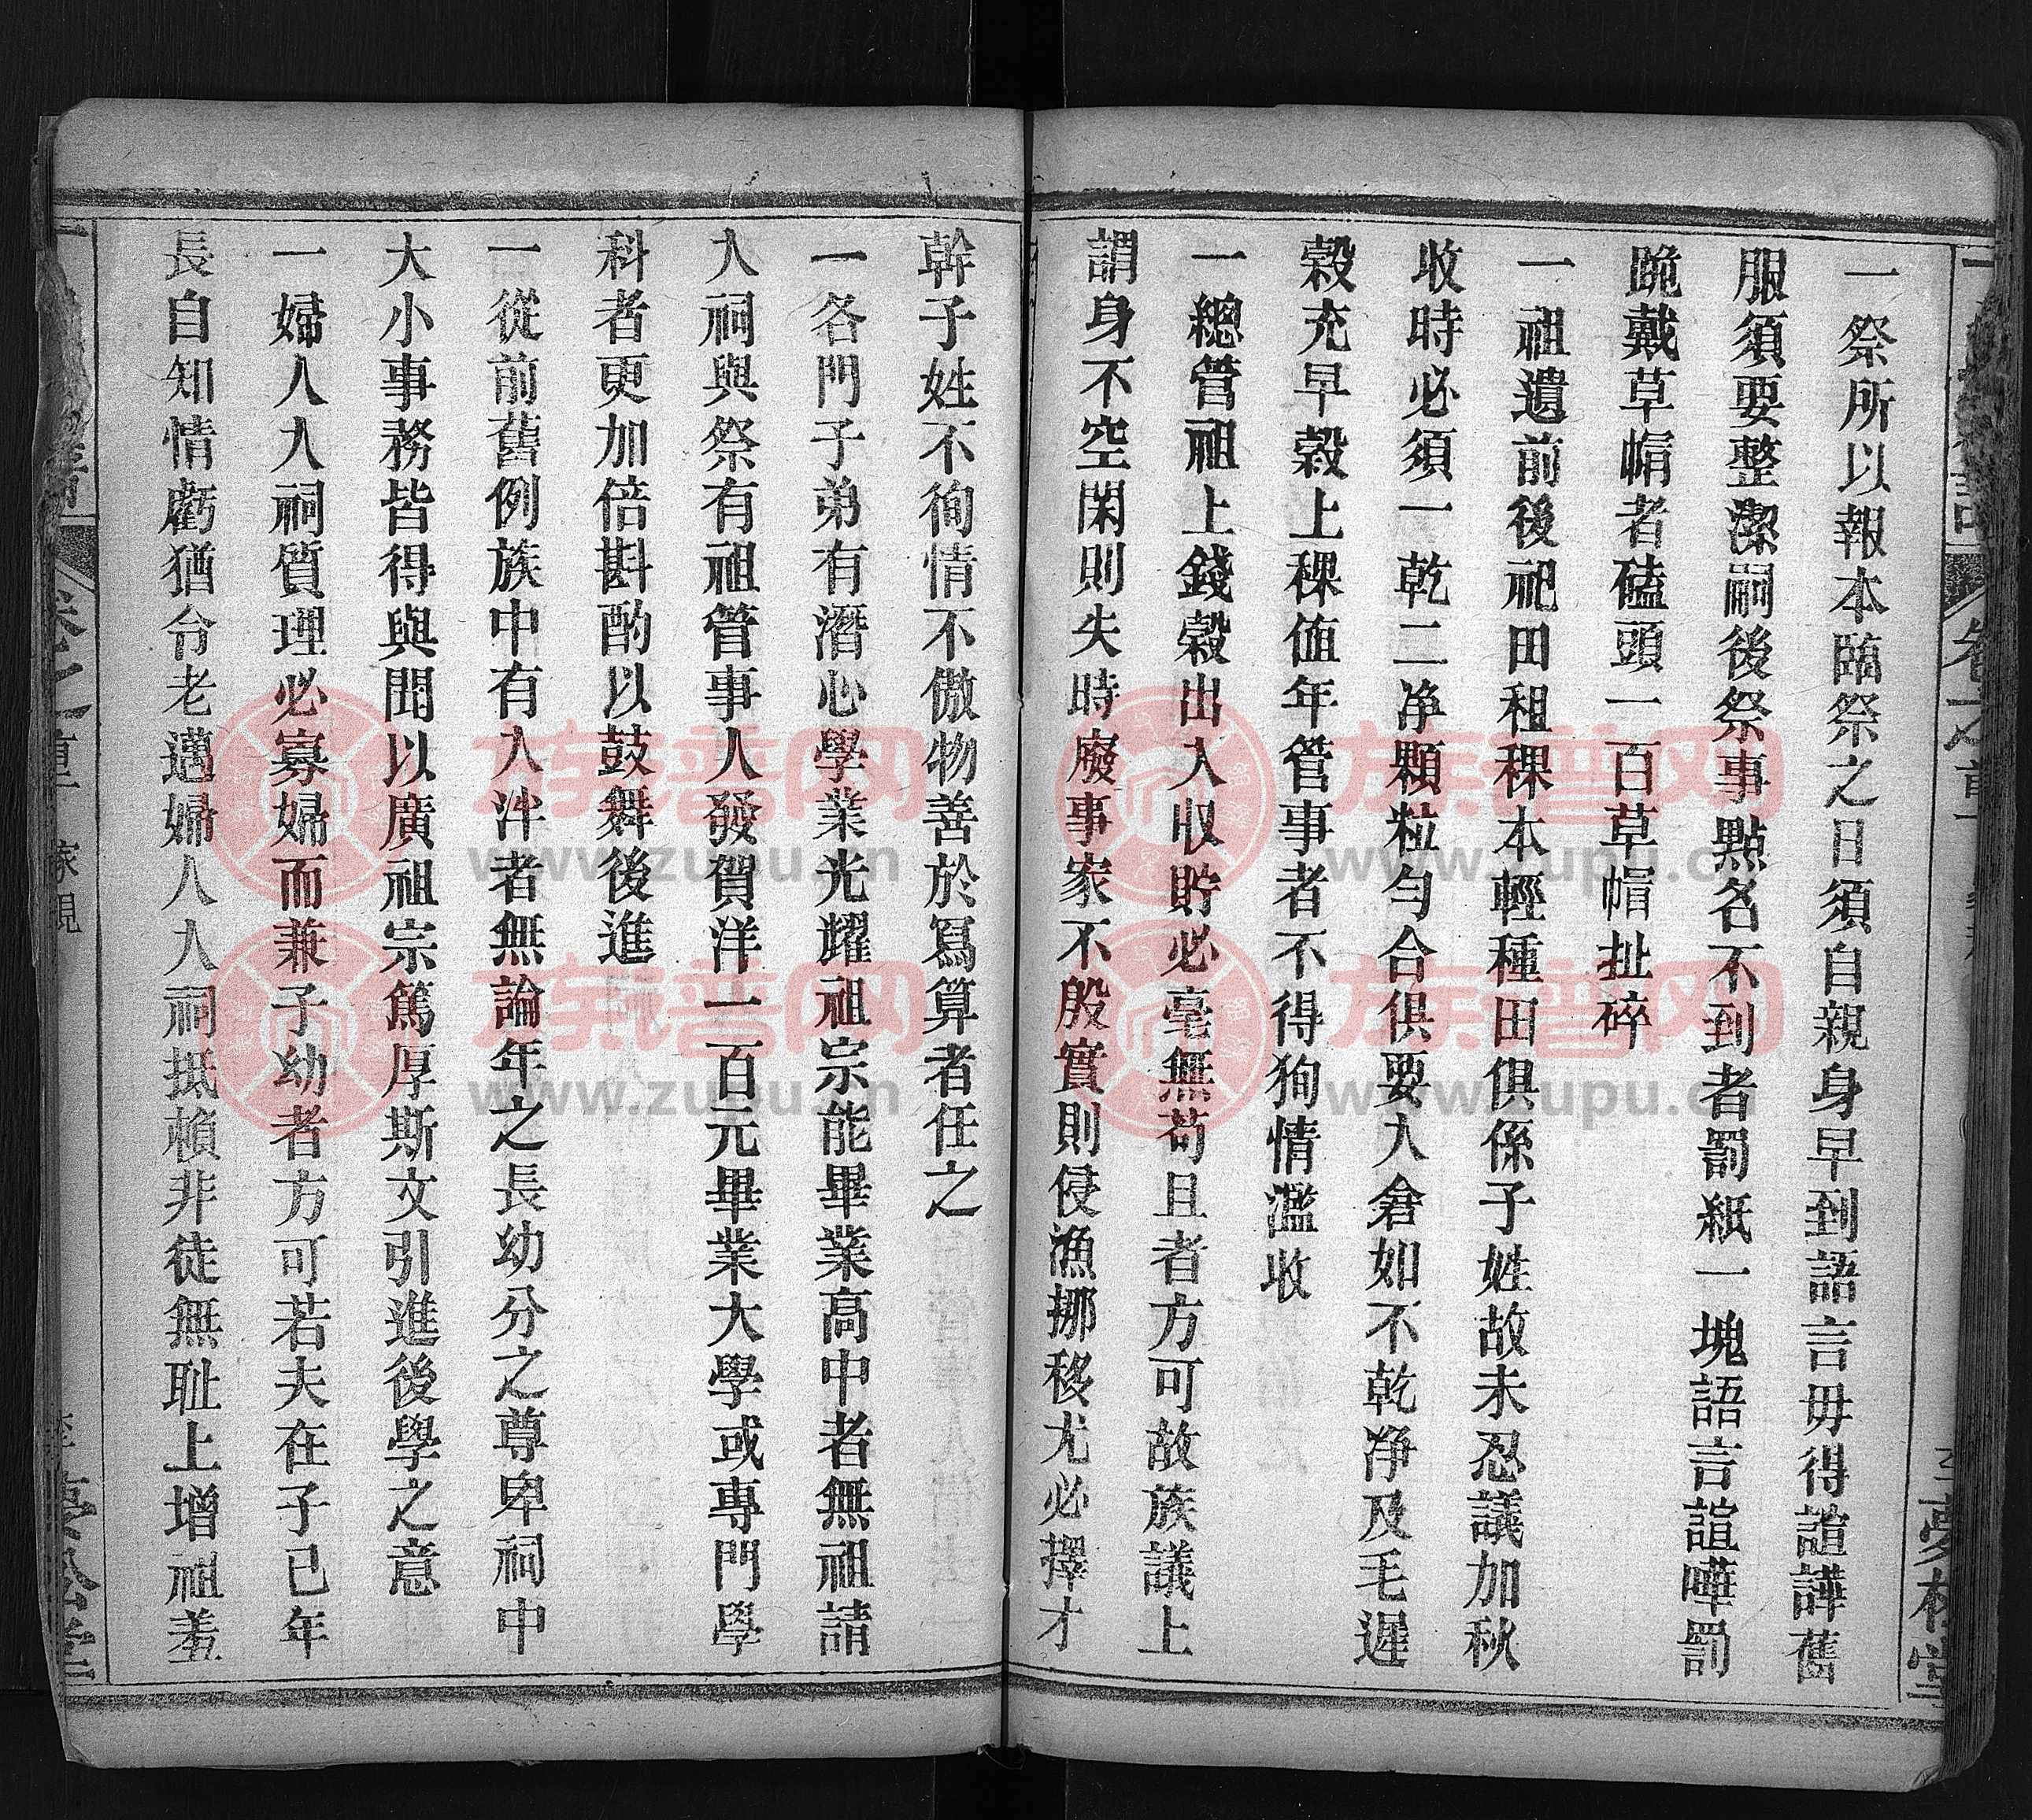 一祭所以報本臨祭之日須自親身早到語言毋得諠譁舊
服須要整潔祠後祭事點名不到者罰紙一塊語言諠嘩罰
跪戴草帽者磕頭一百草帽扯碎
一祖遺前後祀田租稞本輕種田俱係子姓故未忍議加秋
收時必須一乾二净顆粒勻合俱要入倉如不乾净及毛遲
穀充早穀上稞值年管事者不得狥情濫收
一總管祖上錢穀出入收貯必毫無苟且者方可故族議上
謂身不空閑則失時廢事家不殷實則侵漁挪移尤必擇才
幹子姓不徇情不傲物善於寫算者任之
一各門子弟有潛心學業光耀祖宗能畢業高中者無祖請
入祠與祭有祖管事人發賀洋一百元畢業大學或專門學
科者更加倍斟酌以鼓舞後進
一從前舊例族中有入泮者無論年之長幼分之尊卑祠中
大小事務皆得與聞以廣祖宗篤厚斯文引進後學之意
一婦人入祠質理必寡婦而兼子幼者方可若夫在子已年
長自知情虧猶令老邁婦人入祠抵賴非徒無耻上增祖羞
卷之
家規
族谱网
www.zupu.cn
族谱网
www.zupu.cn
族谱网
www.zupu.cn
族谱网
www.zupu.cn